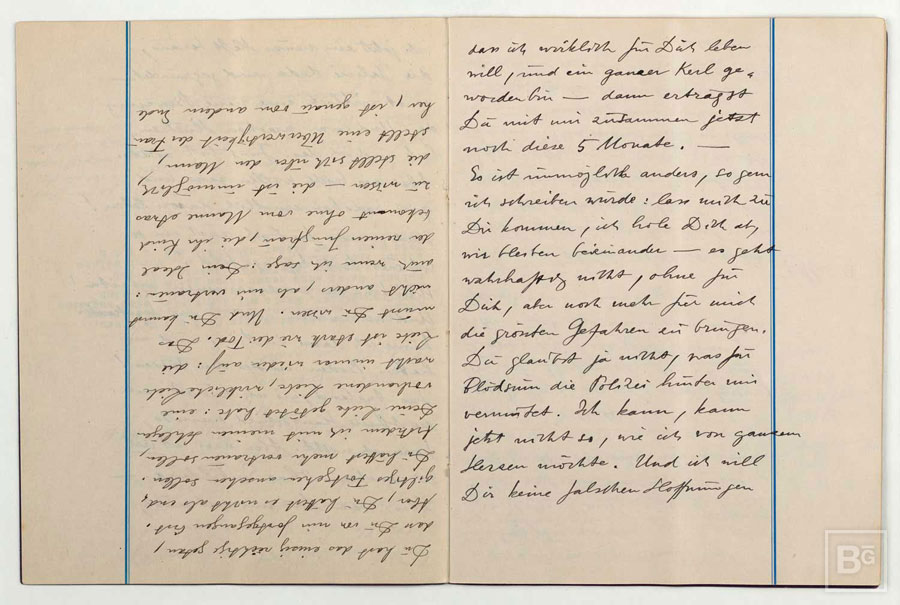 Du hast das einzig richtige getan,
Du von mir fortgegangen bist.
Aber, Du hättest es nicht als end-
gültiges Fortgehen ansehen sollen.
Du hättest mehr vertrauen sollen,
trotzdem ich mit meinen Schlägen
Deine Liebe getötet habe: eine
vorhandene Liebe, wirkliche Liebe
wacht immer wieder auf; die:
Liebe ist stark wie der Tod. Das
musst Du wissen. Und Du kannst
nicht anders, als mir vertrauen:
auch wenn ich sage: Dem Ideal
der reinen Jungfrau, die ihr Kind
bekommt ohne vom Manne etwas
zu wissen — die ist unmöglich,
die stellt sich über den Mann,
stellt eine Überwertigkeit der Frau
her, ist genau vom andern Ende
dass ich wirklich für Dich leben
will, und ein ganzer Kerl ge-
worden bin — dann erträgst
Du mit mir zusammen jetzt
noch diese 5 Monate. —
Es ist unmöglich anders, so gern
ich schreiben würde: lass mich zu
Dir kommen, ich hole Dich ab,
wir bleiben beieinander — es geht
wahrhaftig nicht, ohne für
Dich, aber noch mehr für mich
die grössten Gefahren zu bringen.
Du glaubst ja nicht, was für
Blödsinn die Polizei hinter mir
vermutet. Ich kann, kann
jetzt nicht so, wie ich von ganzem
Herzen möchte. Und ich will
Dir keine falschen Hoffnungen
BG